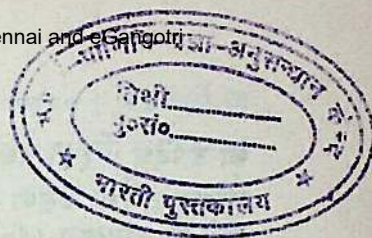 ennai and eGangotri
अनुसन्धान
तिथी..................
पु०सं०..................
★ भारती पुस्तकालय ★